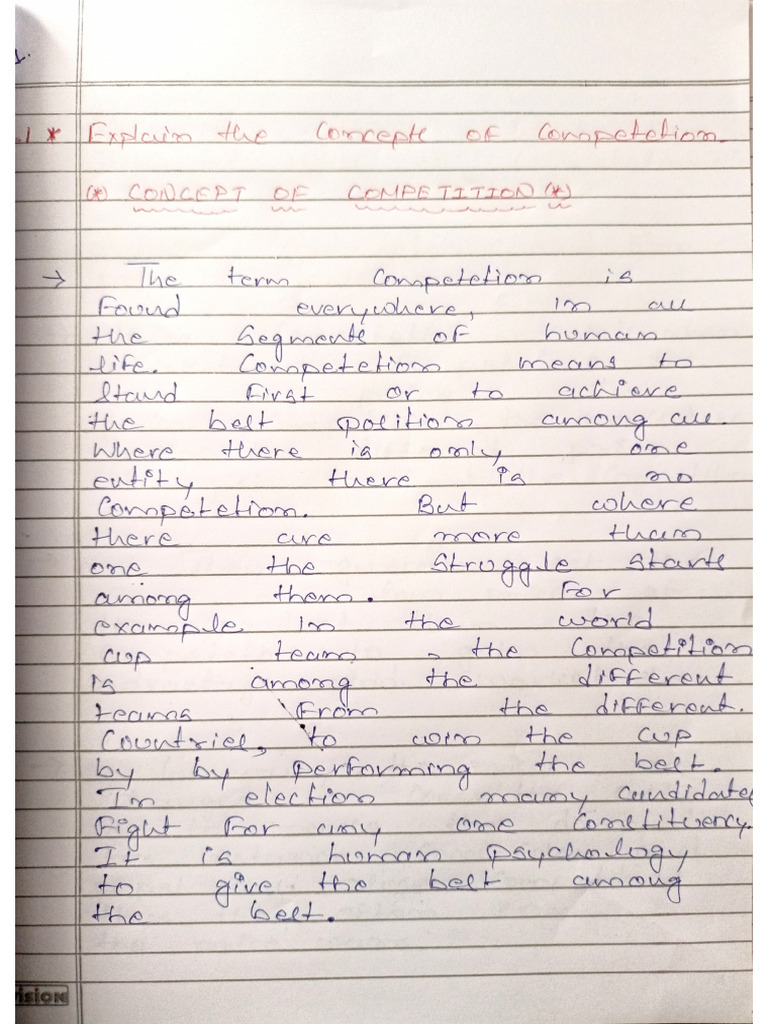 1.
.1 * Explain the Concepte of Competetion.
(*) CONCEPT OF COMPETITION (*)
→ The term Competetion is
Found everywhere, in all
the Segments of human
life. Competetion means to
Stand First or to achieve
the best position among all.
Where there is only one
entity there is no
Competetion. But where
there are more than
one the Struggle Starts
among them. For
example in the world
cup team, the Competition
is among the different
teams From the different.
Countries, to win the cup
by by performing the best.
In election many candidate
Fight For any one Constituency.
It is human psychology
to give the best among
the best.
ision